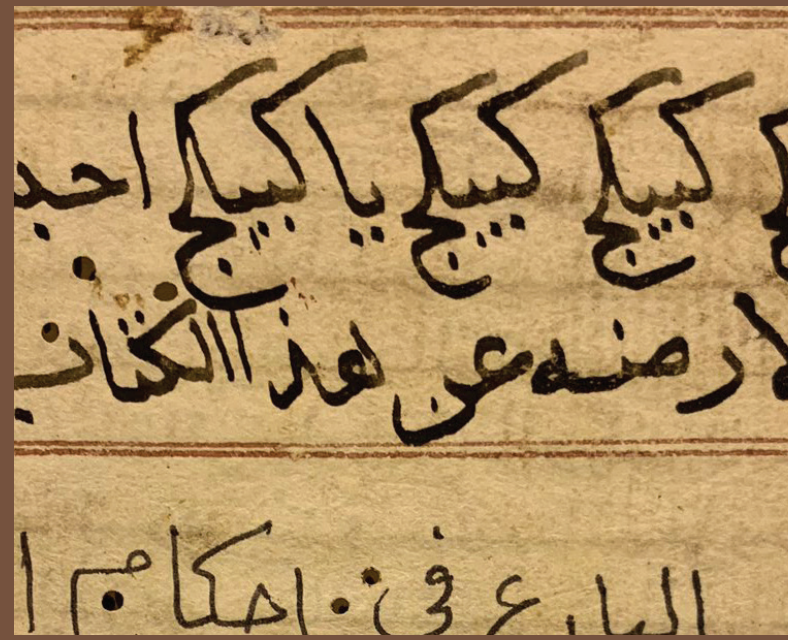 كبيكج كبيكج يا كبيكج احبـ
لارضه عن هذا الكتاب
البارع في احكام ا